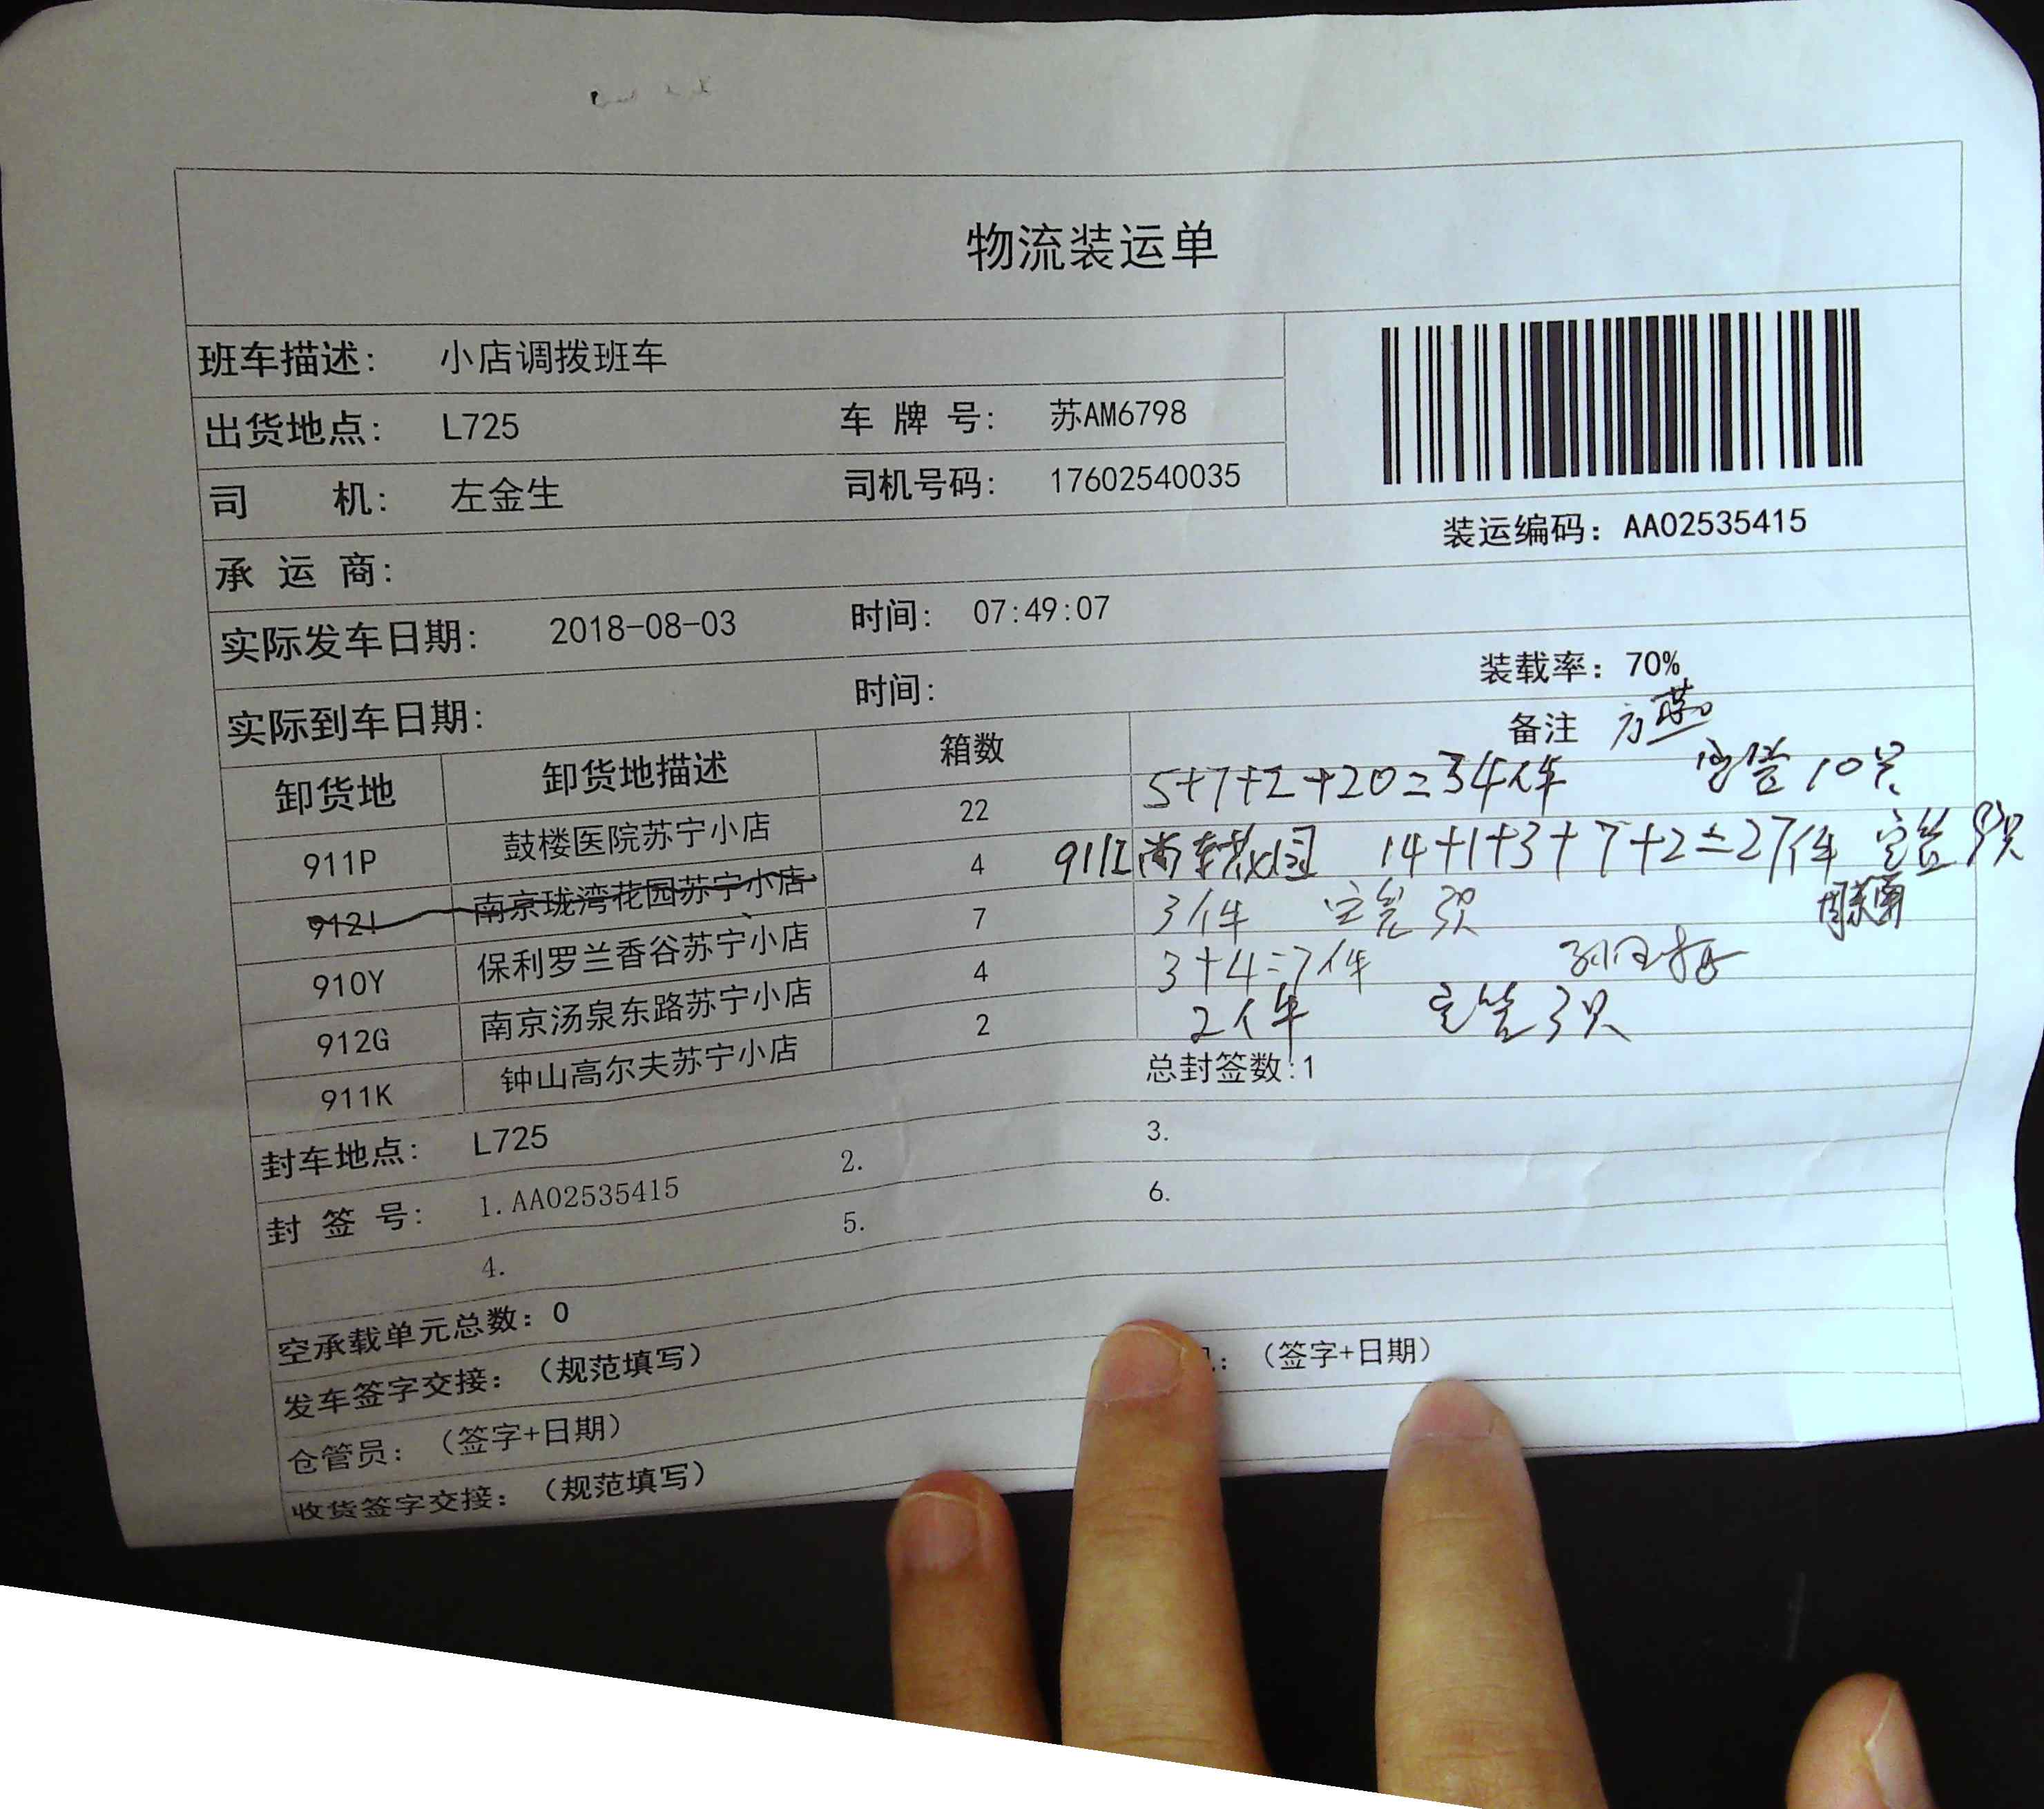 物流装运单
班车描述: 小店调拨班车
出货地点: L725 车 牌 号: 苏AM6798
司 机: 左金生 司机号码: 17602540035
装运编码: AA02535415
承 运 商:
实际发车日期: 2018-08-03 时间: 07:49:07
装载率: 70%
实际到车日期: 时间:
卸货地 卸货地描述 箱数 备注
911P 鼓楼医院苏宁小店 22 5+7+2+20=34件 空筐10只
912I 南京珑湾花园苏宁小店 4 14+1+3+7+2=27件 空筐9只
910Y 保利罗兰香谷苏宁小店 7 3件 空筐3只
912G 南京汤泉东路苏宁小店 4 3+4=7件
911K 钟山高尔夫苏宁小店 2 2件 空筐3只
封车地点: L725 总封签数:1
封 签 号: 1.AA02535415 2. 3.
4. 5. 6.
空承载单元总数: 0
发车签字交接: (规范填写)
仓管员: (签字+日期) : (签字+日期)
收货签字交接: (规范填写)